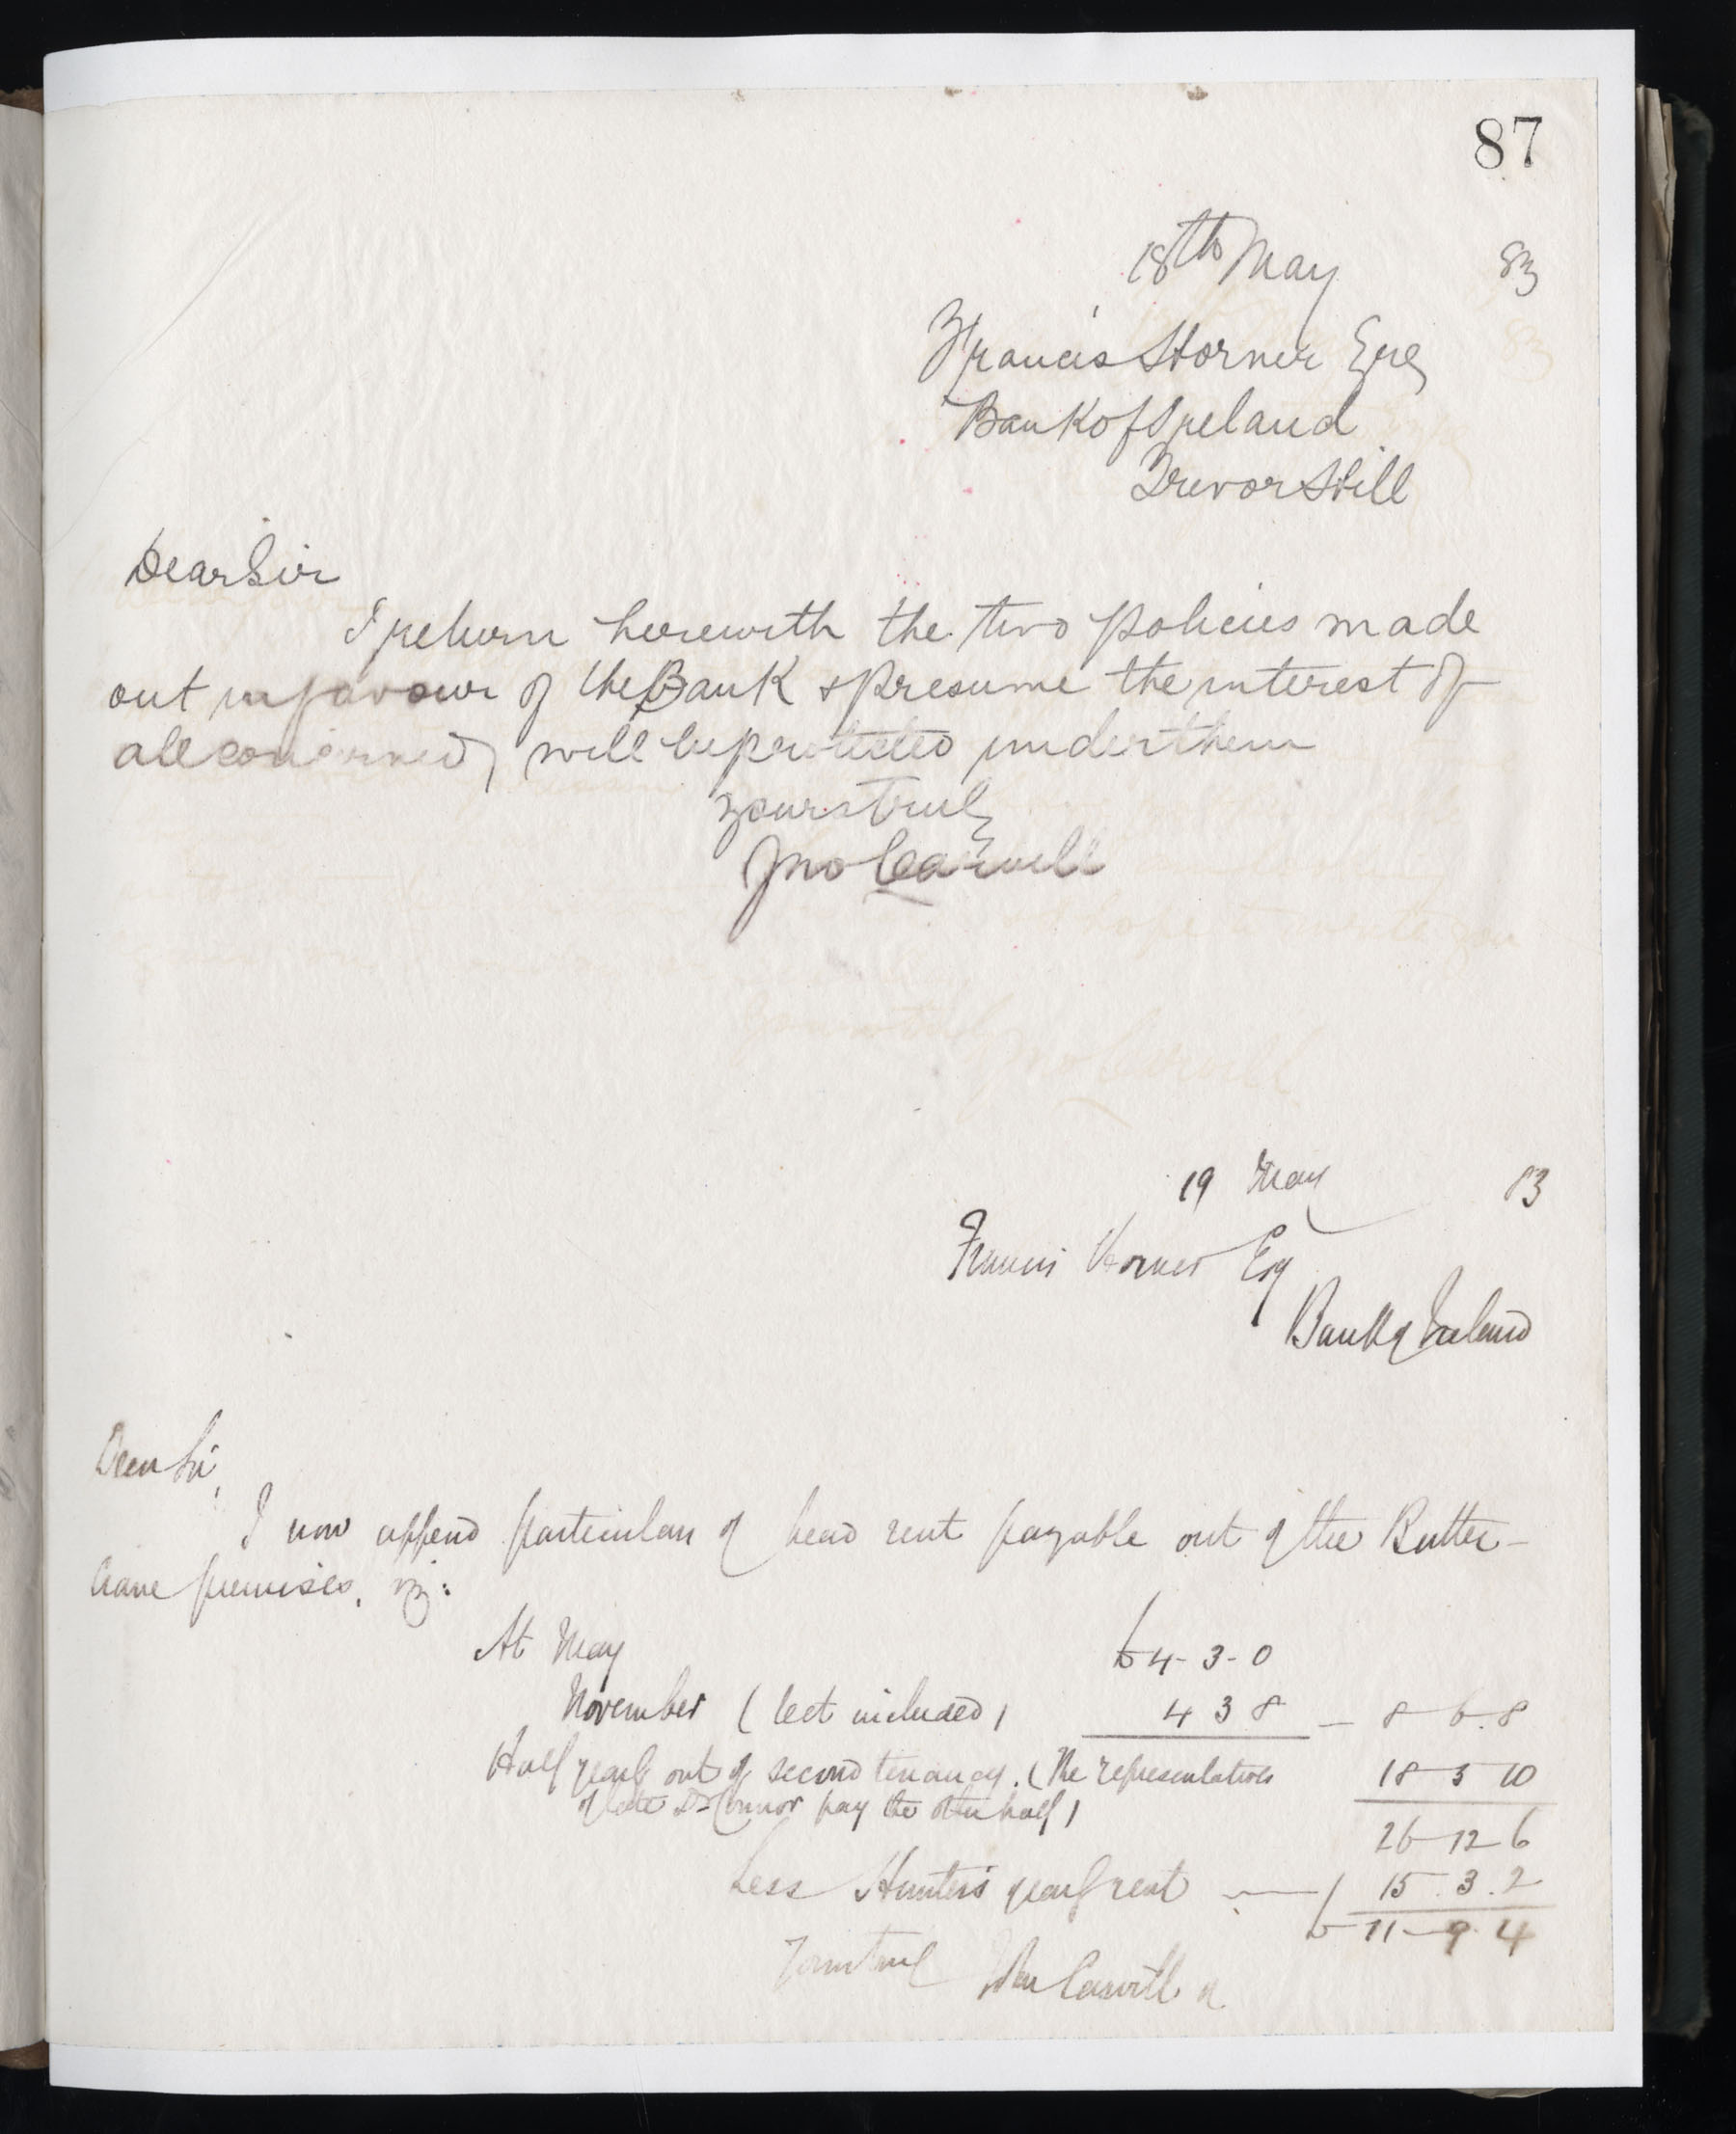 87
18th May 83
Francis Horner Esq
Bank of Ireland
Trevor Hill
Dear Sir
I return herewith the two policies made
out in favour of the Bank & presume the interest of
all concerned, will be protected under them
Yours truly
Jno Carvill
19 May 83
Francis Horner Esq
Bank of Ireland
Dear Sir,
I now append particulars of head rent payable out of the Butter-
Crane premises, viz:
At May £4-3-0
November ( lect included ) 4 3 8 — 8 6.8
Half yearly out of second tenancy. (The representatives 18 5 10
of late Dr Connor pay the other half) 
26-12-6
Less Hunter's yearly rent — 15.3.2
£ 11-9.4
Yours truly John Carvill